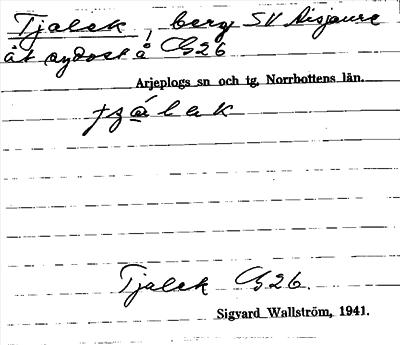 Tjalek, berg SV Aisjaure
åt sydost å G26
Arjeplogs sn och tg, Norrbottens län.
tjálak
Tjalek G26.
Sigvard Wallström, 1941.